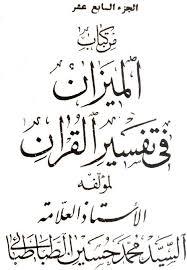 الجزء الرابع عشر
من كتاب
الميزان
في تفسير القرآن
لمؤلفه
الأستاذ العلامة
السيد محمد حسين الطباطبائي